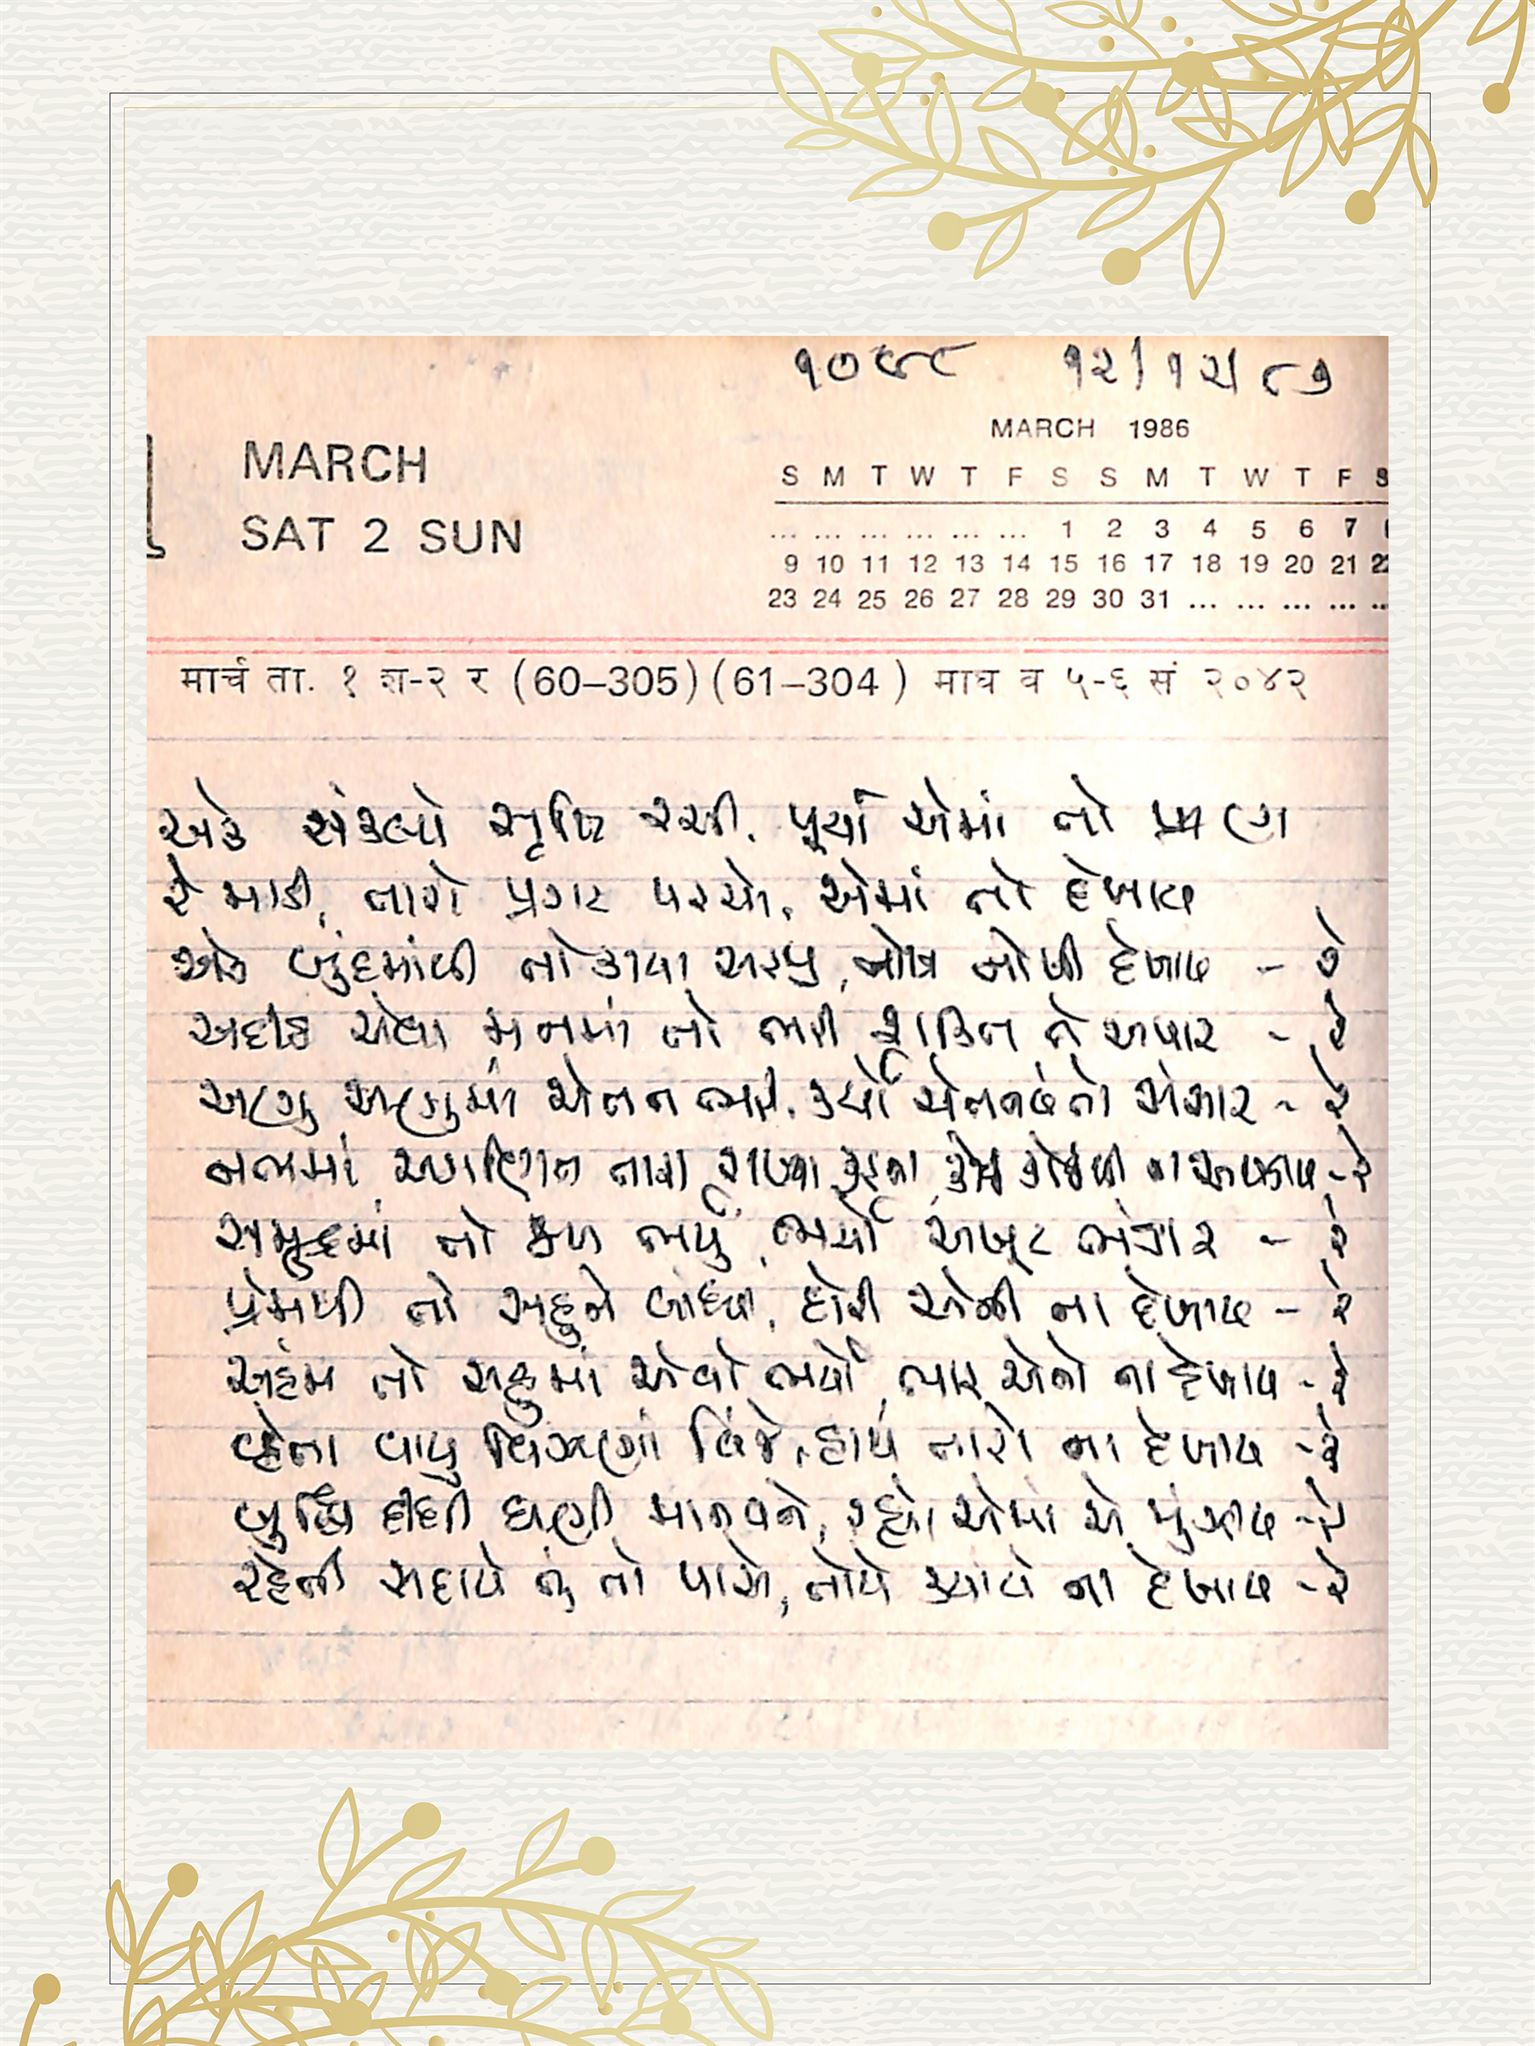 ૧૦૯૮ ૧૨/૧૨/૮૭
MARCH 1986
MARCH
SAT 2 SUN
S M T W T F S S M T W T F S
... ... ... ... ... ... 1 2 3 4 5 6 7
9 10 11 12 13 14 15 16 17 18 19 20 21 22
23 24 25 26 27 28 29 30 31 ... ... ... ... ...
मार्च ता. १ श-२ र (60–305) (61–304) माघ व ५-६ सं २०४२
એક સંકલ્પે સૃષ્ટિ રચી, પૂર્યા એમાં તો પ્રાણ
રે માડી, તારો પ્રગટ પરચો, એમાં તો દેખાય
એક બુંદમાંથી તો કાયા સરજી, નોખ નોખી દેખાય - રે
અદીઠ એવા મનમાં તો ભરી શક્તિ તે અપાર - રે
અણુ અણુમાં ચેતન ભરી, કર્યો ચેતનવંતો સંસાર - રે
નભમાં અગણિત તારા ફરતા ના અથડાય - રે
સમુદ્રમાં તો જળ ભર્યું, ભર્યો અખૂટ ભંડાર - રે
પ્રેમથી તો સહુને બાંધ્યા, દોરી એની ના દેખાય - રે
અહંમ તો સહુમાં એવો ભર્યો, ભાર એનો ના દેખાય - રે
વ્હેતા વાયુ વિંઝણાં વિંઝે, હાથ તારો ના દેખાય - રે
બુદ્ધિ દીધી ઘણી માનવને, રહ્યો એમાં એ મુંઝાય - રે
રહેતી સદાયે તું તો પાસે, તોયે ક્યાંયે ના દેખાય - રે